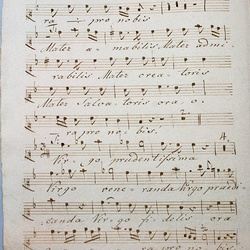 ra - pro nobis
Mater a - mabilis Mater adme
rabilis Mater crea - toris
Mater Salva - toris ora - o -
- ra pro no - bis.
Vir - go prudentissima
Virgo vene - randa Virgo praedi
canda Virgo fi - delis ora
ora pro no bis